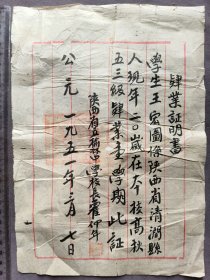 肄業証明書
學生王宏圖係陝西省清澗縣
人現年二〇歲在本校高秋
五三級肄業壹學期此証
陝西省立綏中學校長霍仲年
公元一九五一年二月七日